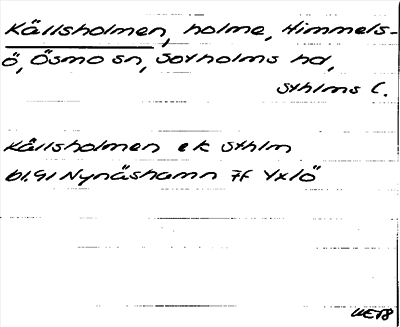 Källsholmen, holme, Himmels-
ö, Ösmo sn, Sotholms hd,
Sthlms l.
Källsholmen ek Sthlm
bl. 91 Nynäshamn 7f Yxlö
UET8